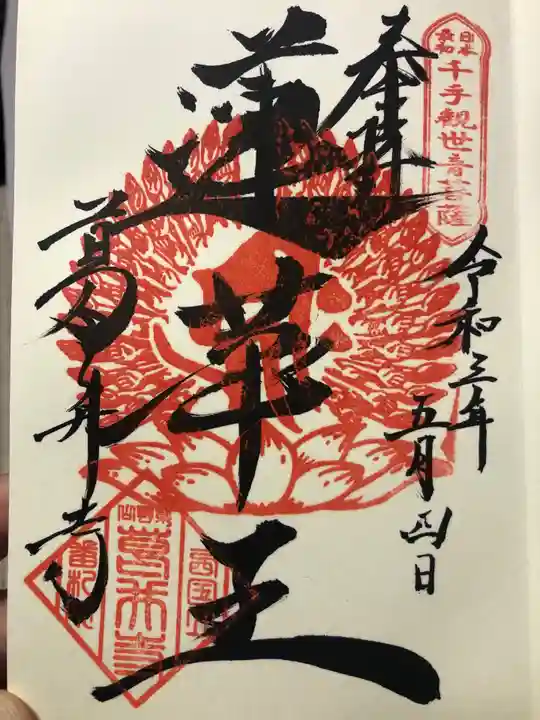 日本
最初
千手観世音菩薩
奉拝
令和三年
五月四日
蓮華王
葛井寺
葛井寺